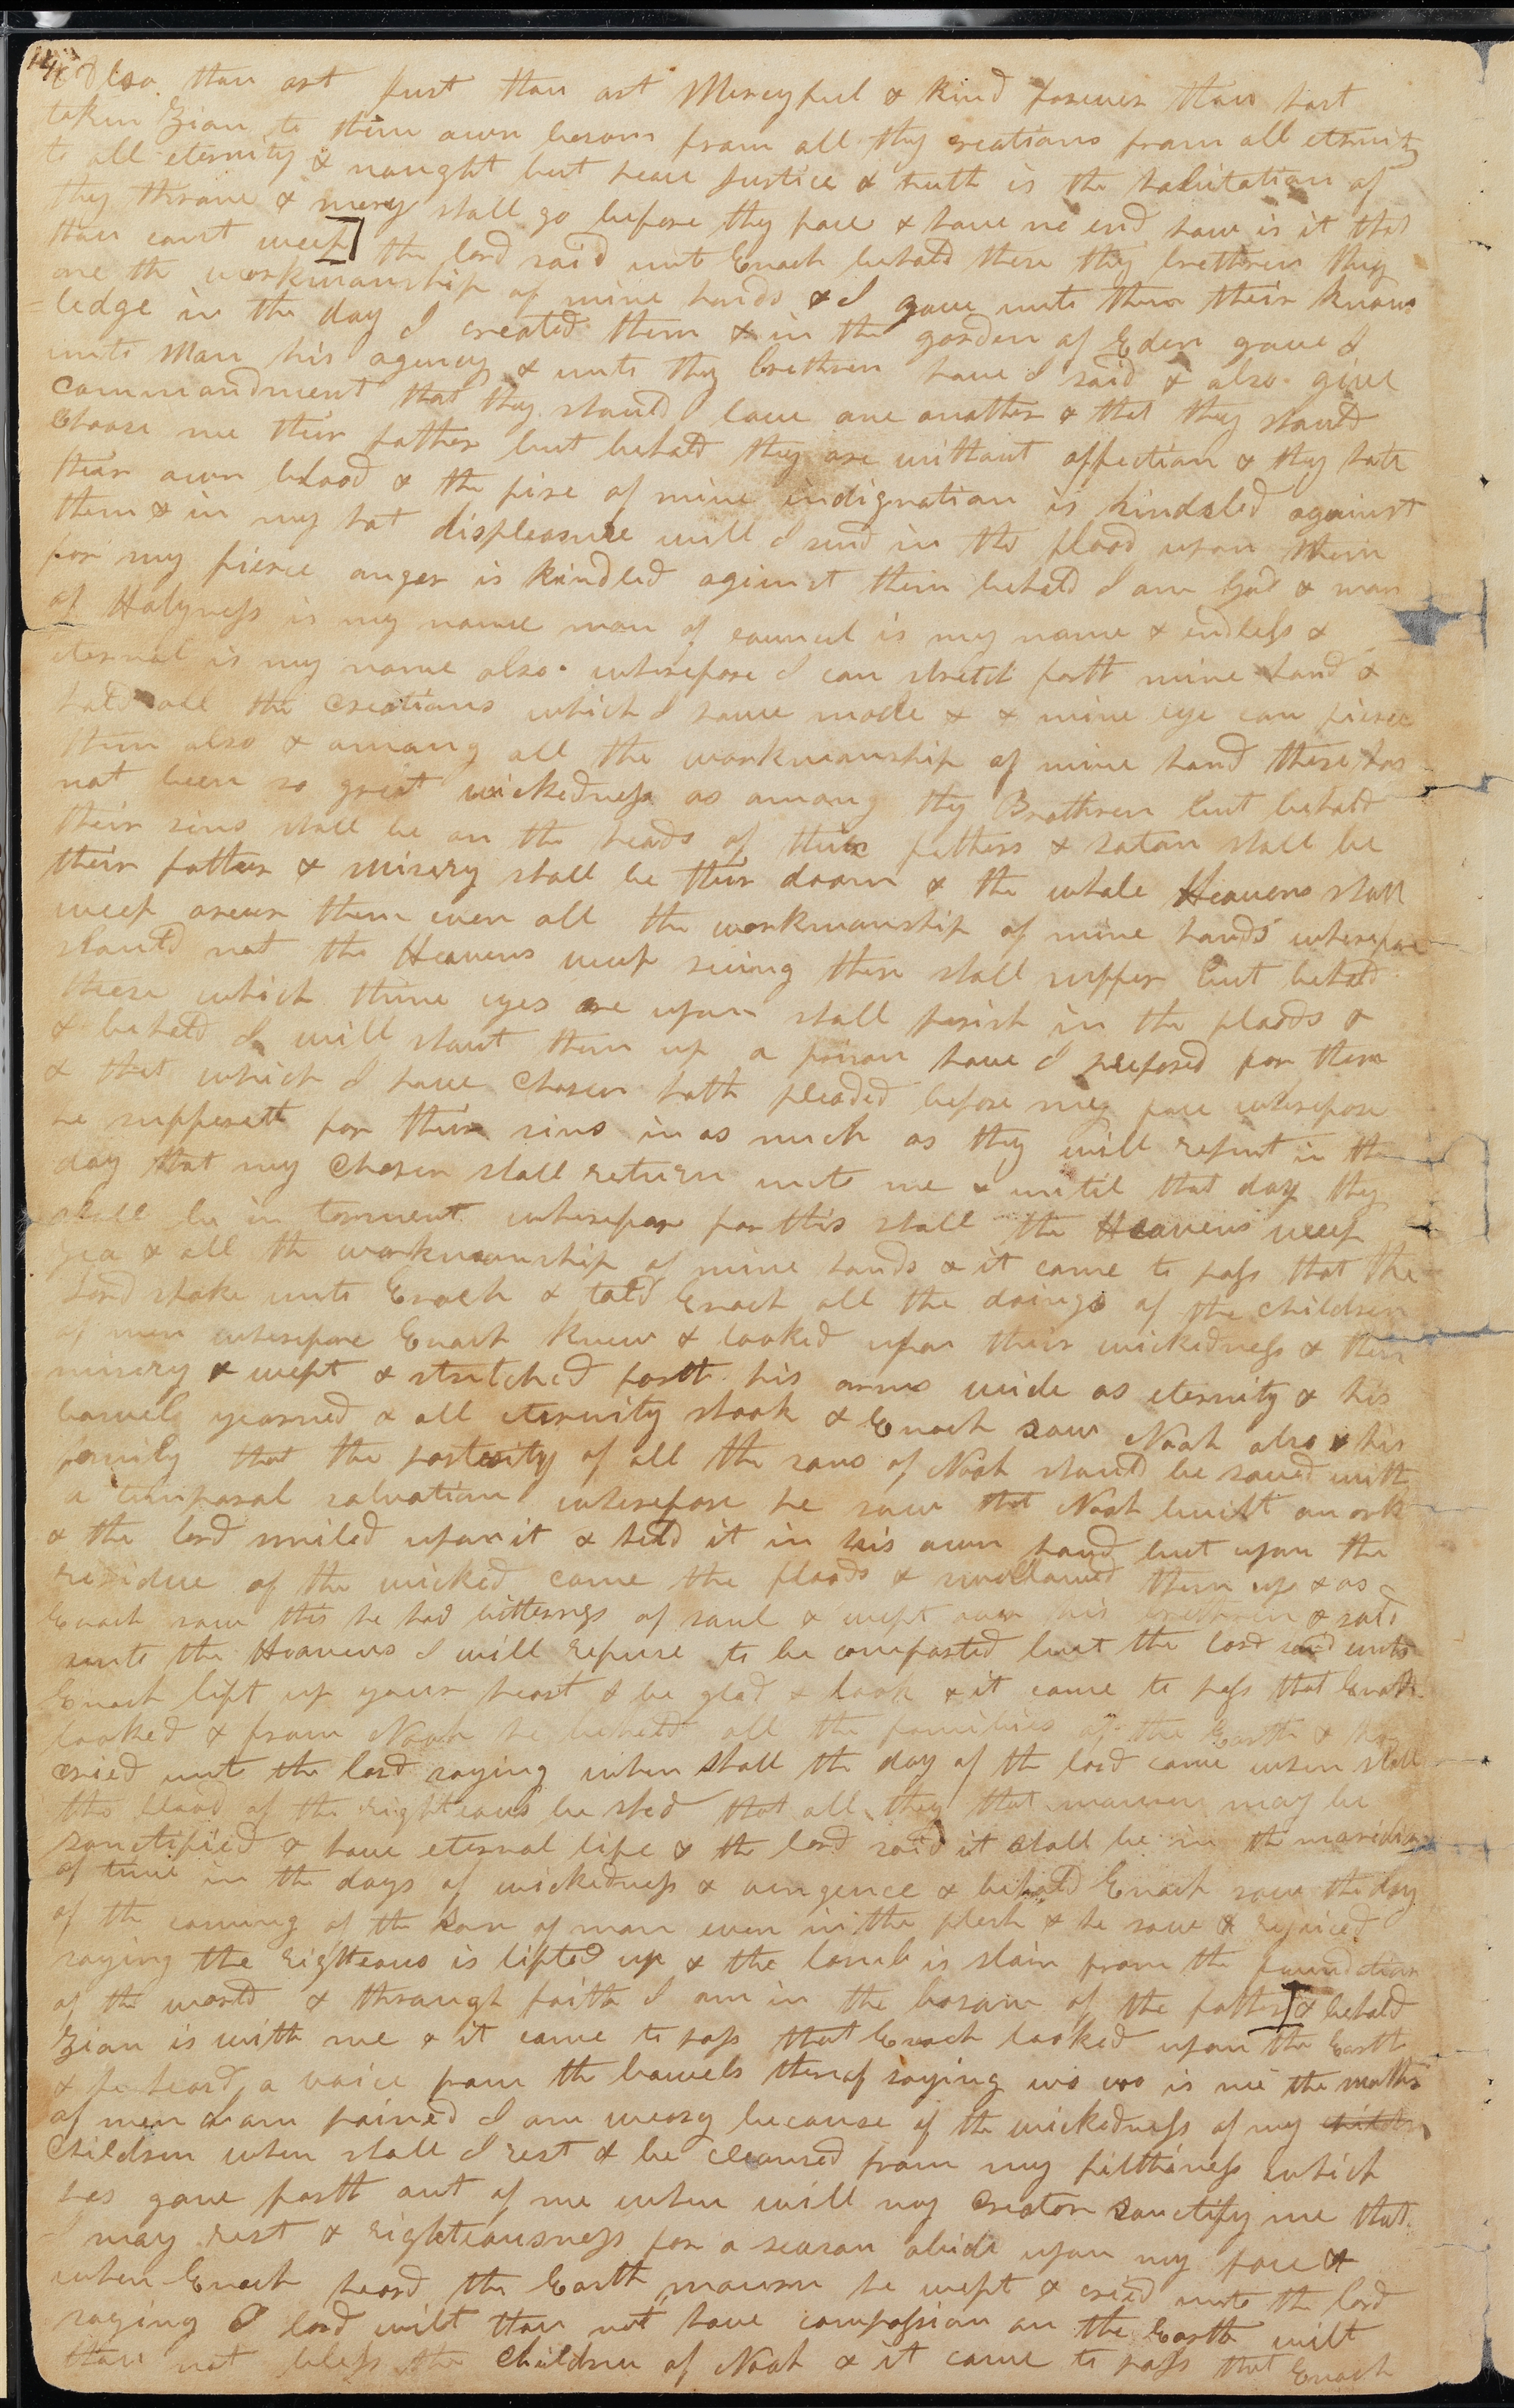 14
& Also thou art Just thou art Mercyful & Kind forever thou hast
taken Zion to thine own bosom from all thy creations from all eternity
to all eternity & naught but peace Justice & truth is the habitation of
thy throne & mercy shall go before thy face & have no end how is it that
thou canst weep] the lord said unto Enoch behold these thy brethren they
are the workmanship of mine hands & I gave unto them their know
=ledge in the day I created them & in the garden of Eden gave I
unto Man his agency & unto thy brethren have I said & also give
commandment that they should love one another & that they should
Choose me their father but behold they are without affection & they hate
their own blood & the fire of mine indignation is kindeled against
them & in my hot displeasure will I send in the flood upon them
for my fierce anger is Kindled aginst them behold I am God & man
of Holyness is my name man of council is my name & endless &
eternal is my name also wherefore I can stretch forth mine hand &
hold all the Creations which I have made & & mine eye can pierce
them also & among all the workmanship of mine hand there has
not been so great wickedness as among thy Brethren but behold
their sins shall be on the heads of their fathers & satan shall be
their father & misery shall be their doom & the whole Heavens shall
weep over them even all the workmanship of mine hands wherefore
should not the Heavens weep seeing these shall suffer but behold
these which thine eyes are upon shall perish in the floods &
& behold I will shut them up a prison have I prepared for them
& that which I have Chosen hath pleaded before my face wherefore
he suffereth for their sins in as much as they will repent in the
day that my Chosen shall return unto me & until that day they
shall be in torment wherefore for this shall the Heavens weep
yea & all the workmanship of mine hands & it came to pass that the
Lord spake unto Enoch & told Enoch all the doings of the children
of men wherefore Enoch Knew & looked upon their wickedness & their
misery & wept & stretched forth his arms wide as eternity & his
bowels yearned & all eternity shook & Enoch saw Noah also & his
family that the posterity of all the sons of Noah should be saved with
a temporal salvation wherefore he saw that Noah built an ark
& the lord smiled upon it & held it in his own hand but upon the
residue of the wicked came the floods & swallowed them up & as
Enoch saw this he had bitterness of soul & wept over his brethren & said
unto the Heavens I will refuse to be comforted but the lord said unto
Enoch lift up your heart & be glad & look & it came to pass that Enoch
looked & from Noah he beheld all the families of the Earth & he
cried unto the lord saying when shall the day of the lord come when shall
the blood of the righteous be shed that all they that mourn may be
sanctified & have eternal life & the lord said it shall be in the meridian
of time in the days of wickedness & vengence & behold Enoch saw the day
of the coming of the Son of man even in the flesh & he saw & rejoiced
saying the righteous is lifted up & the lamb is slain from the foundation
of the world & through faith I am in the bosom of the father] & behold
Zion is with me & it came to pass that Enoch looked upon the Earth
& he heard a voice from the bowels thereof saying wo wo is me the mother
of men I am pained I am weary because of the wickedness of my
Children when shall I rest & be cleansed from my filthiness which
has gone forth out of me when will my Creator Sanctify me that
I may rest & righteousness for a season abide upon my face &
when Enoch heard the Earth mourn he wept & cried unto the lord
saying O lord wilt thou not have compassion on the Earth wilt
thou not bless the Children of Noah & it came to pass that Enoch